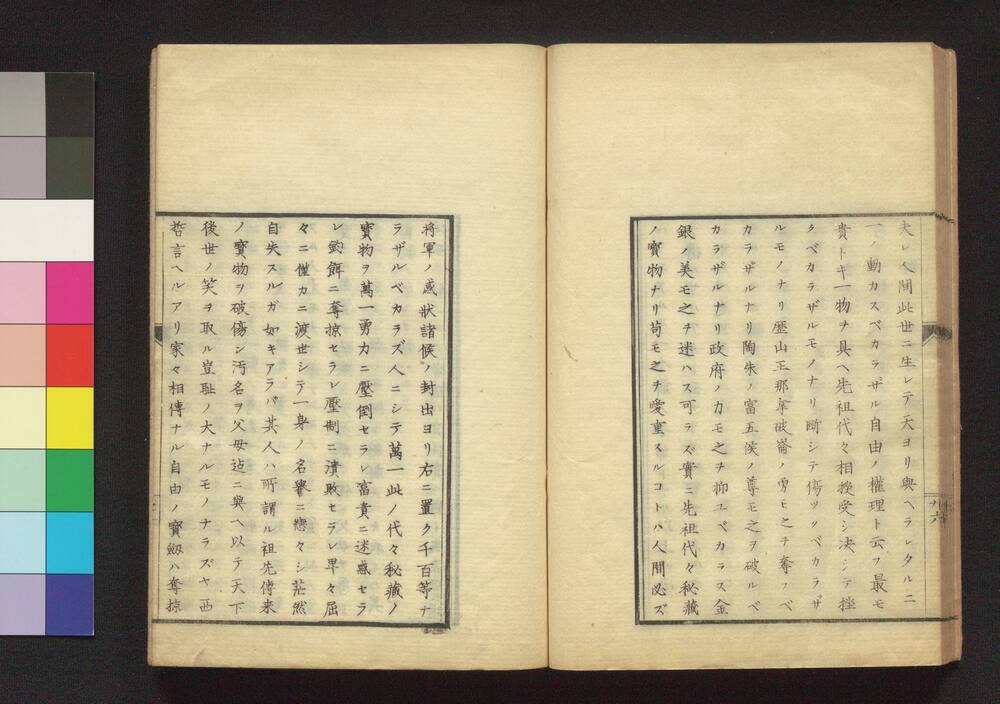 夫レ人間此世ニ生レテ天ヨリ與ヘラレタル二
一ノ動カスベカラザル自由ノ權理ト云フ最モ
貴トキ一物ヲ具ヘ先祖代々相授受シ决シテ挫
クベカラザルモノナリ断シテ傷ツクベカラザ
ルモノナリ歴山王那拿破崙ノ勇モ之ヲ奪フベ
カラザルナリ陶朱ノ富五侯ノ尊モ之ヲ破ルベ
カラザルナリ政府ノカモ之ヲ抑ユベカラス金
銀ノ美モ之ヲ迷ハス可ラズ實ニ先祖代々秘藏
ノ寳物ナリ苟モ之ヲ愛重スルコトハ人間必ズ
將軍ノ感狀諸候ノ封出ヨリ右ニ置ク千百等ナ
ラザルベカラズ人ニシテ萬一此ノ代々秘藏ノ
寳物ヲ萬一勇力ニ壓倒セラレ富貴ニ迷惑セラ
レ釣餌ニ奪掠セラレ壓制ニ潰敗セラレ早々屈
々ニ僅カニ渡世シテ一身ノ名譽ニ戀々シ茫然
自失スルガ如キアラバ其人ハ所謂ル祖先傳来
ノ寳物ヲ破傷シ汚名ヲ父母迠ニ與ヘ以テ天下
後世ノ笑ヲ取ル豈耻ノ大ナルモノナラズヤ西
哲言ヘルアリ家々相傳ナル自由ノ寳劔ハ奪掠